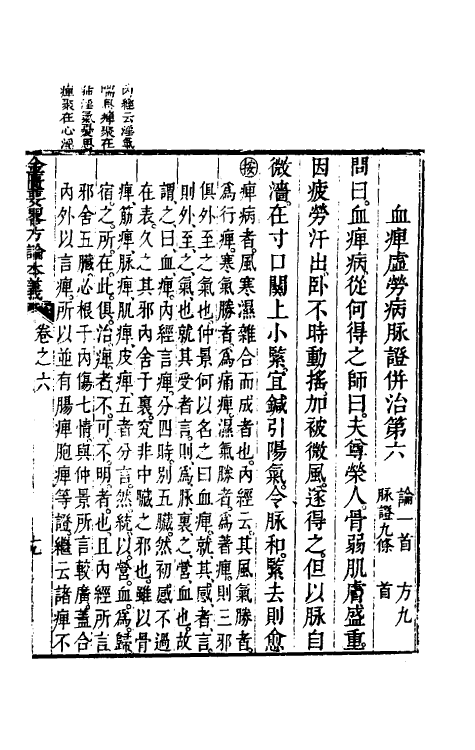 血痺虛勞病脉證併治第六 論一首 脉證九條 方九首
問曰。血痺病。從何得之。師曰。夫尊榮人。骨弱肌膚盛。重
因疲勞汗出。臥不時動搖。加被微風。遂得之。但以脉自
微濇。在寸口關上小緊。宜鍼引陽氣。令脉和。緊去則愈
按痺病者。風寒濕雜合而成者也。內經云。其風氣勝者。
爲行痺。寒氣勝者。爲痛痺。濕氣勝者。爲著痺。則三邪
俱外至之氣也。仲景何以名之曰血痺。就其感者言。
則外至之氣也。就其受者言。則爲脉裏之營血也。故
謂之曰血痺。內經言痺。分四時別五臟。然初感不過
在表。久之其邪內舍于裏。究非中臟之邪也。雖以骨
痺筋痺脉痺肌痺皮痺。五者分言。然統以營血爲歸
宿之所在此。俱治痺者。不可不明者。也且內經所言
邪舍五臟。必根于內傷七情。與仲景所言較廣。蓋合
內外以言痺。所以並有腸痺胞痺等證。繼云諸痺不
金匱要畧方論本義 卷之六
內經云淫氣
痺聚在
淫氣憂思
痺聚在心淫